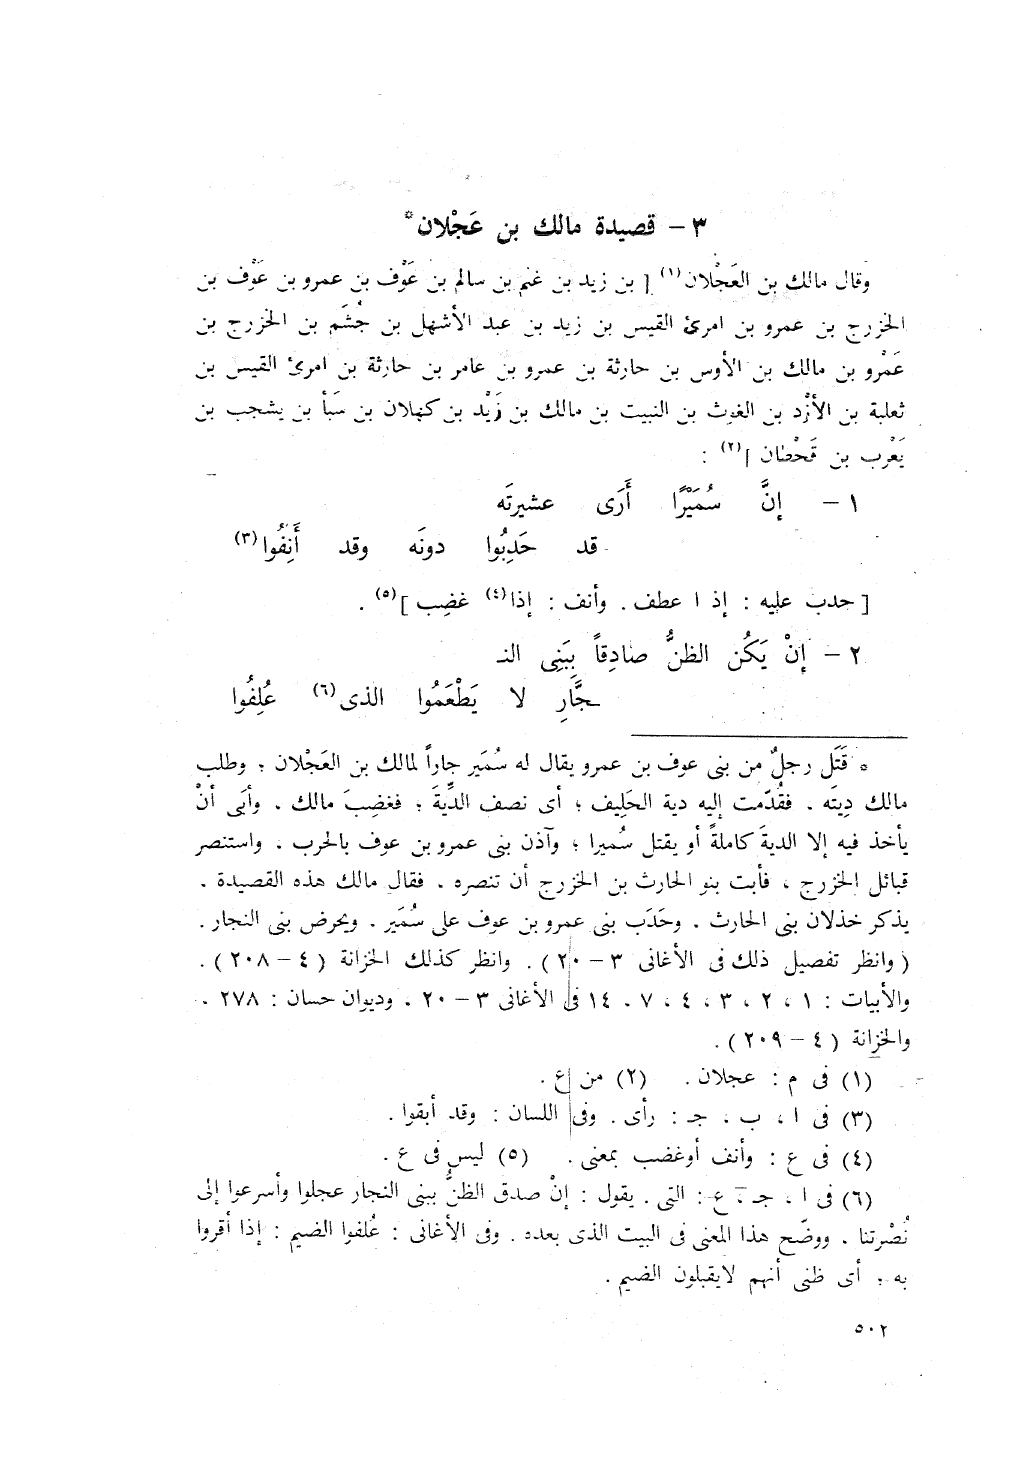 ٣ - قصيدة مالك بن عَجْلان*
وقال مالك بن العَجْلان(١) [ بن زيد بن غنم بن سالم بن عَوْف بن عمرو بن عَوْف بن
الخزرج بن عمرو بن امرئ القيس بن زيد بن عبد الأشهل بن جُشَم بن الخزرج بن
عَمْرو بن مالك بن الأوس بن حارثة بن عمرو بن عامر بن حارثة بن امرئ القيس بن
ثعلبة بن الأزْد بن الغوث بن النبيت بن مالك بن زَيْد بن كهلان بن سَبأ بن يشجب بن
يَعْرب بن قَحْطان ](٢) :
١ - إنَّ سُمَيْرًا أَرَى عشيرتَه
قد حَدِبُوا دونَه وقد أَنِفُوا(٣)
[ حدب عليه : إذ ا عطف . وأنف : إذا(٤) غضِب ](٥) .
٢ - إنْ يَكُن الظنُّ صادِقاً بِبَنِى النـ
ـجَّارِ لا يَطْعَمُوا الذى(٦) عُلِفُوا
* قَتَل رجلٌ من بنى عوف بن عمرو يقال له سُمَير جاراً لمالك بن العَجْلان ؛ وطلب
مالك دِيتَه . فقُدّمت إليه دية الحَلِيف ؛ أى نصف الدِّيةَ ؛ فغضِبَ مالك . وأبَى أنْ
يأخذ فيه إلا الديةَ كاملةً أو يقتل سُميرا ؛ وآذن بنى عمرو بن عوف بالحرب . واستنصر
قبائل الخزرج ، فأبت بنو الحارث بن الخزرج أن تنصره . فقال مالك هذه القصيدة .
يذكر خذلان بنى الحارث . وحَدَب بنى عمرو بن عوف على سُمَير . ويحرض بنى النجار .
( وانظر تفصيل ذلك فى الأغانى ٣ - ٢٠ ) . وانظر كذلك الخزانة ( ٤ - ٢٠٨ ) .
والأبيات : ١ ، ٢ ، ٣ ، ٤ ، ٧ . ١٤ فى الأغانى ٣ - ٢٠ . وديوان حسان : ٢٧٨ .
والخزانة ( ٤ - ٢٠٩ ) .
(١) فى م : عجلان . (٢) من ع .
(٣) فى ا ، ب ، جـ : رأى . وفى اللسان : وقد أبقوا .
(٤) فى ع : وأنف أوغضب بمعنى . (٥) ليس فى ع .
(٦) فى ا ، جـ ، ع : التى . يقول : إنْ صدق الظنُّ ببنى النجار عجلوا وأسرعوا إلى
نُصْرتنا . ووضّح هذا المعنى فى البيت الذى بعده . وفى الأغانى : عُلفوا الضيم : إذا أقروا
به ؛ أى ظنى أنهم لايقبلون الضيم .
٥٠٢